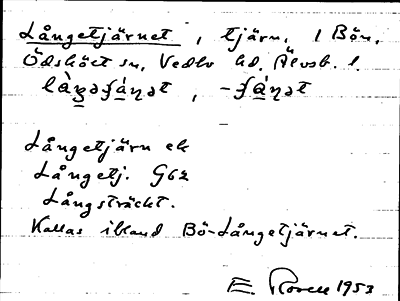 Långetjärnet, tjärn, i Bön,
Ödsköct sn, Vedbo hd. Älvsb. l.
Långetjärn ek
Långetj. G62
Långsträckt.
Kallas ibland Bö-Långetjärnet.
E. 1953